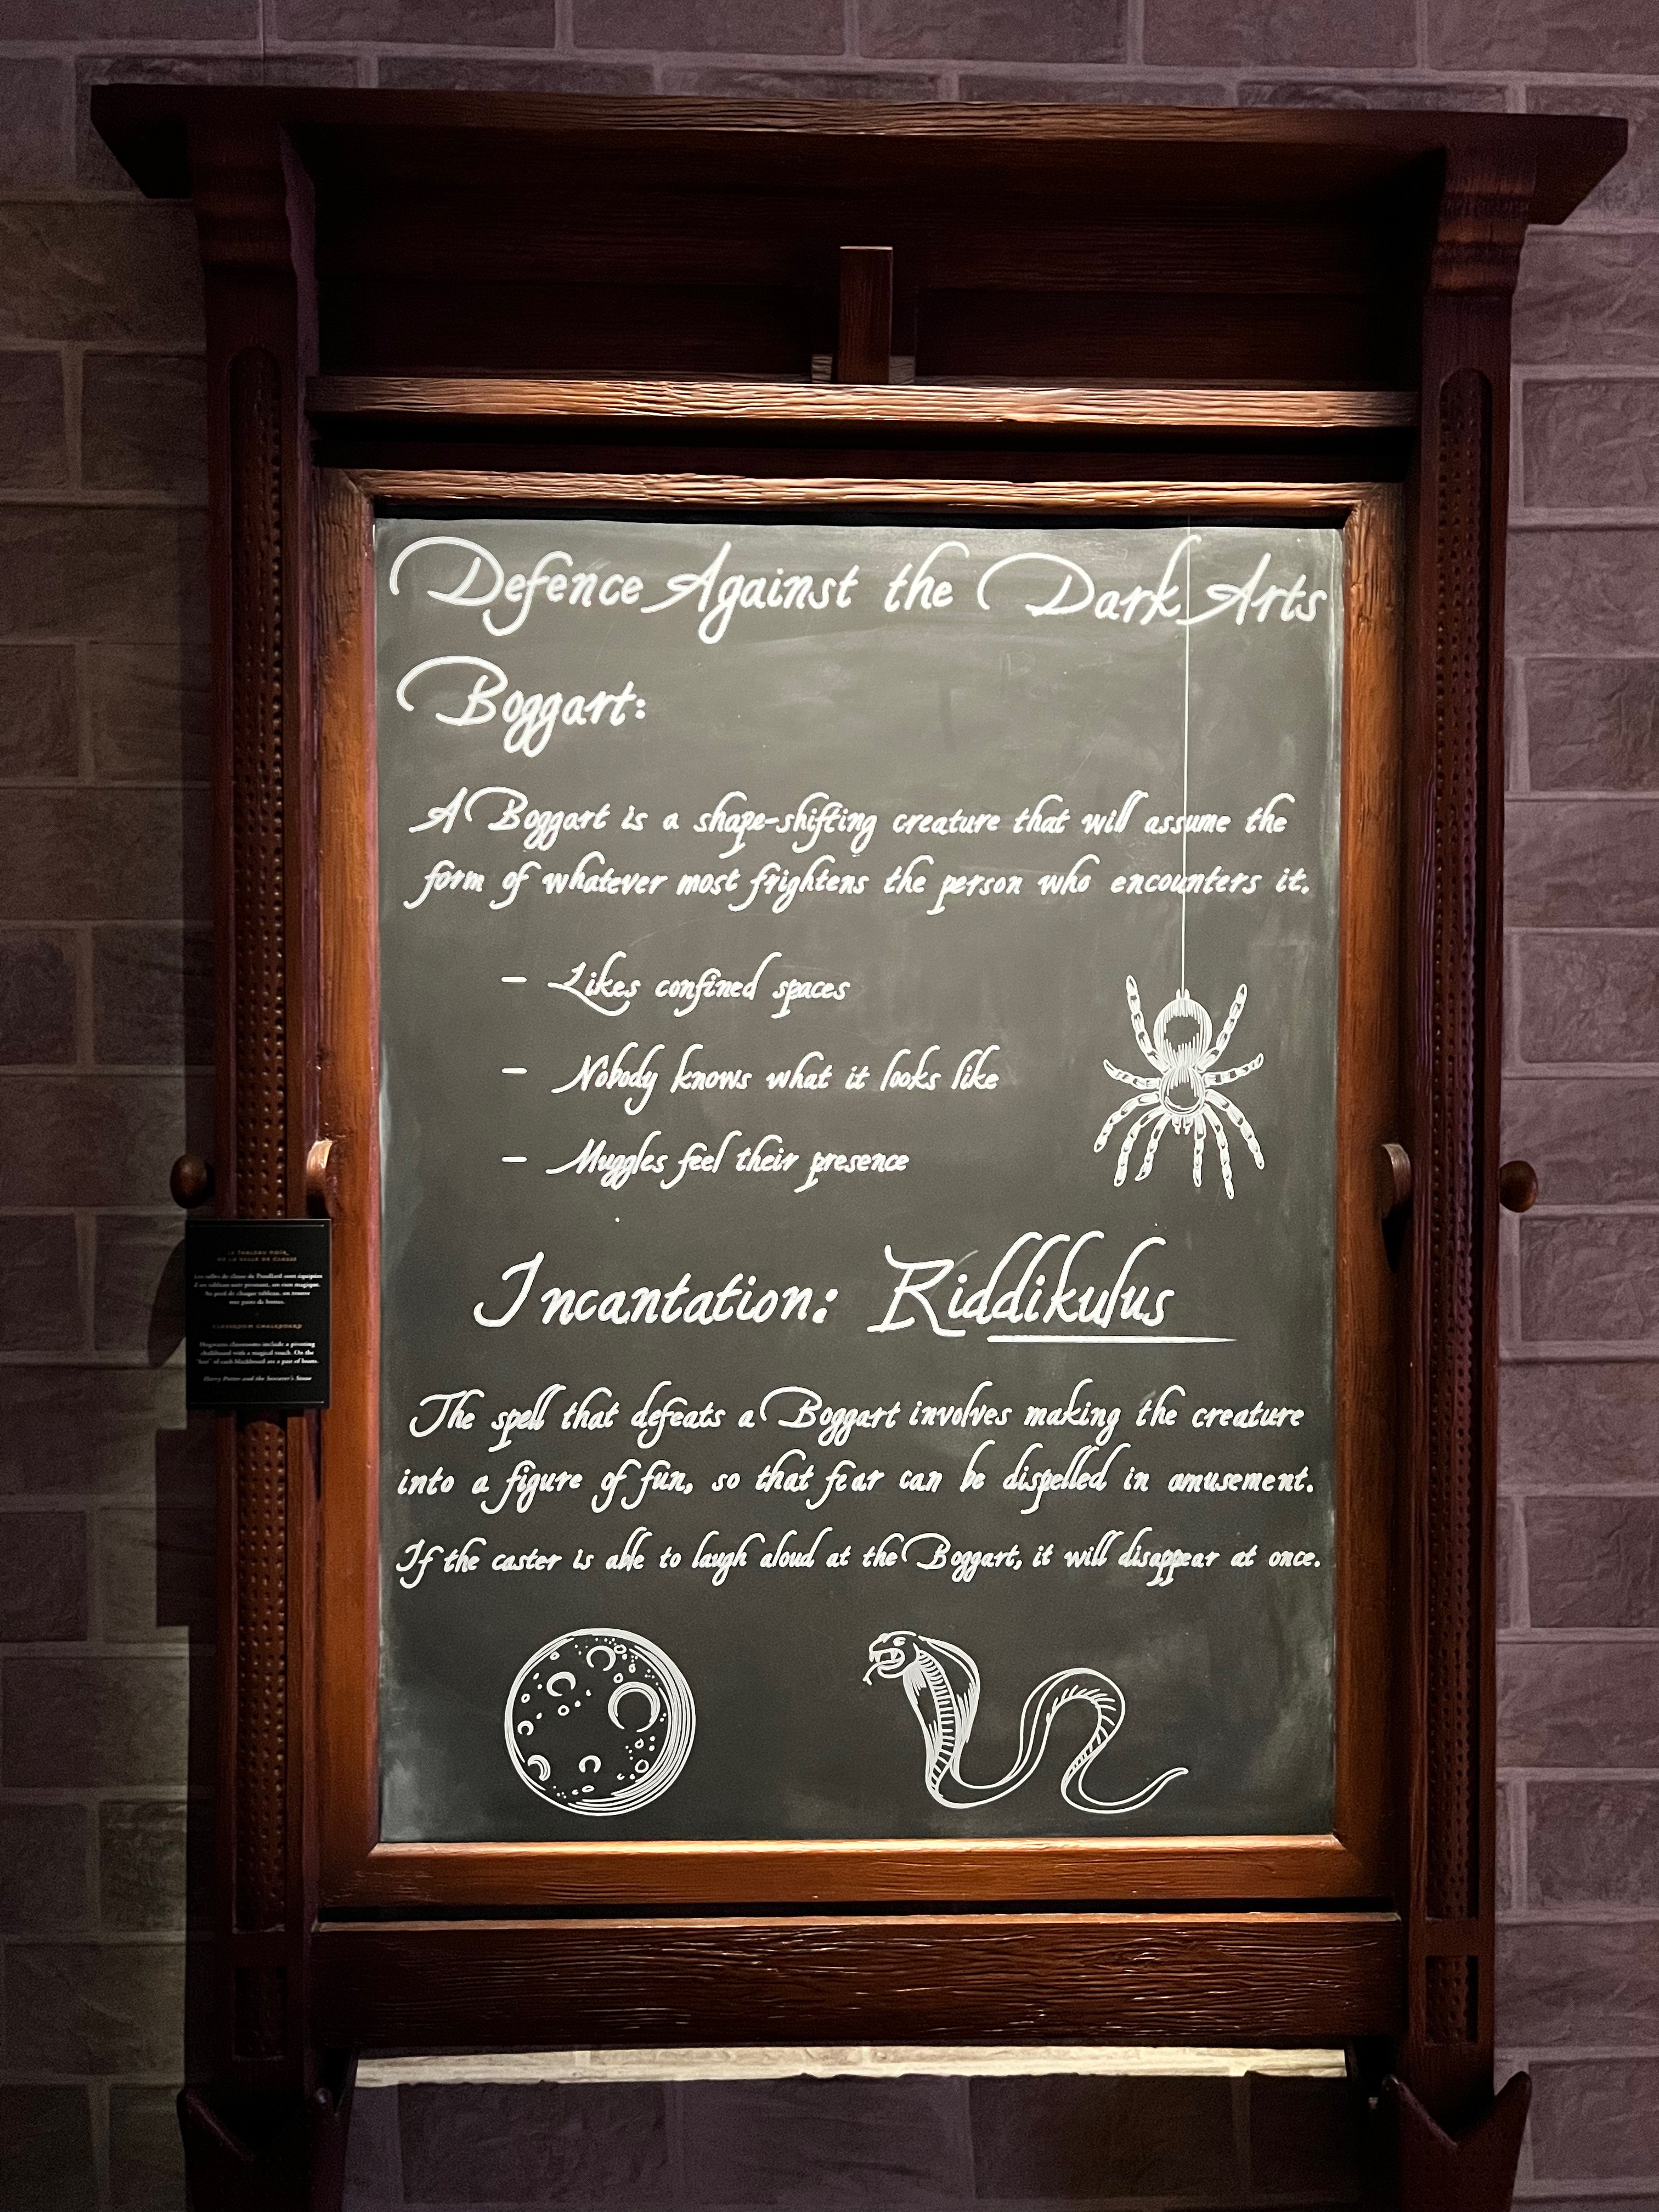 Defence Against the Dark Arts
Boggart:
A Boggart is a shape-shifting creature that will assume the
form of whatever most frightens the person who encounters it.
- Likes confined spaces
- Nobody knows what it looks like
- Muggles feel their presence
Incantation: Riddikulus
The spell that defeats a Boggart involves making the creature
into a figure of fun, so that fear can be dispelled in amusement.
If the caster is able to laugh aloud at the Boggart, it will disappear at once.
LE TABLEAU NOIR
DE LA SALLE DE CLASSE
Les salles de classe de Poudlard sont équipées
d'un tableau noir pivotant, un rien magique.
Au pied de chaque tableau, on trouve
une paire de bottes.
CLASSROOM CHALKBOARD
Hogwarts classrooms include a pivoting
chalkboard with a magical touch. On the
"feet" of each blackboard are a pair of boots.
Harry Potter and the Sorcerer's Stone